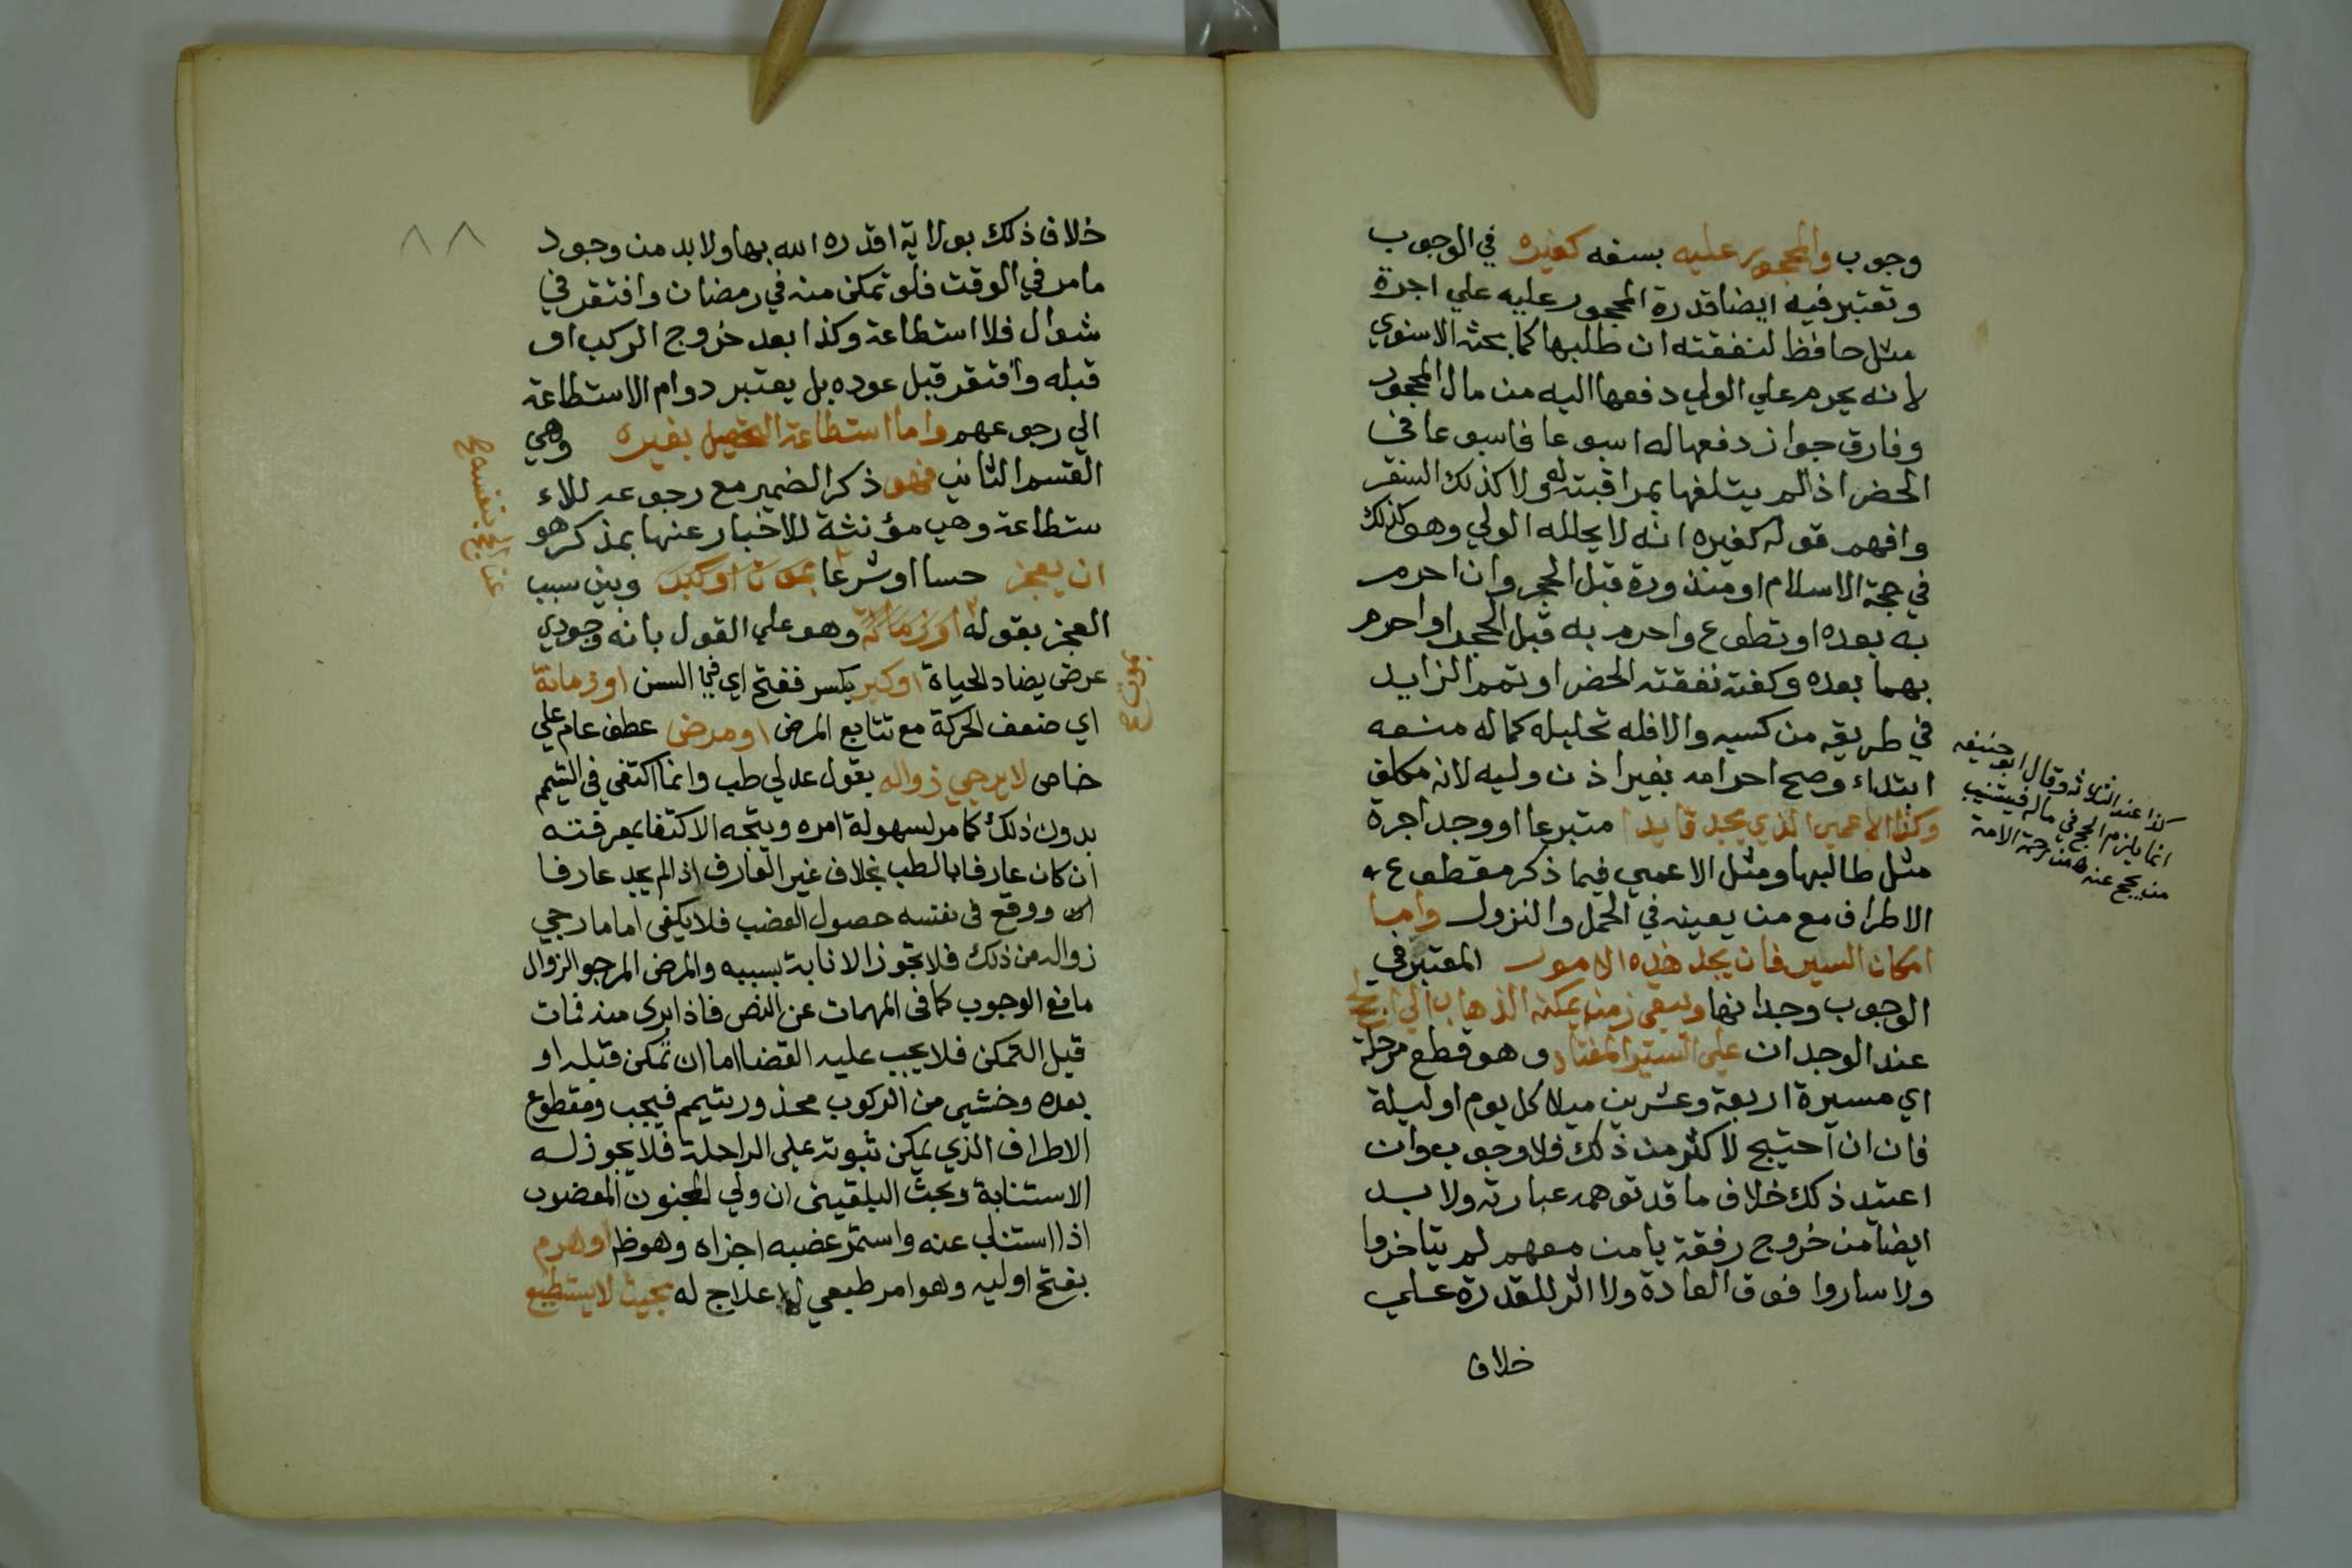 وجوب والمحجور عليه بسفه كغيره في الوجوب
وتعتبر فيه ايضا قدرة المحجور عليه علي اجرة
مثل حافظ لنفقته ان طلبها كما بحثه الاسنوي
لانه يحرم علي الولي دفعها اليه من مال المحجور
وفارق جواز دفعها له اسبوعا فاسبوعا في
الحضر اذ لم يتلفها بمراقبته له ولا كذلك السفر
وافهم قوله كغيره انه لا يحلله الولي وهو كذلك
في حجة الاسلام او منذورة قبل الحجر وان احرم
به بعده او تطوع واحرم به قبل الحجر او احرم
بهما بعده وكفته نفقته الحضر او تمم الزايد
في طريقه من كسبه والا فله تحليله كما له منعه
ابتداء وصح احرامه بغير اذن وليه لانه مكلف
وكذا الاعمي الذي يجد قايدا متبرعا او وجد اجرة
مثل طالبها ومثل الاعمي فيما ذكر مقطوع
الاطراف مع من يعينه في الحمل والنزول واما
امكان السير فان يجد هذه الامور المعتبر في
الوجوب وجدانها ويبقي زمن يمكنه الذهاب الي الحج
عند الوجدان علي السير المعتاد وهو قطع مرحلة
اي مسيرة اربعة وعشرين ميلا كل يوم او ليلة
فان احتيج لاكثر من ذلك فلا وجوب وان
اعتيد ذلك خلاف ما قد توهمه عبارته ولا بد
ايضا من خروج رفقة يامن معهم لم يتاخروا
ولا ساروا فوق العادة ولا اثر للقدرة علي
خلاف
كذا عند الثلاثه وقال ابو حنيفه
انما يلزم الحج في ماله فيستنيب
من يحج عنه من رحمة الامة
٨٨
خلاف ذلك بولاية اقدره الله بها ولا بد من وجود
ما مر في الوقت فلو تمكن منه في رمضان وافتقر في
شوال فلا استطاعة وكذا بعد خروج الركب او
قبله وافتقر قبل عوده بل يعتبر دوام الاستطاعة
الي رجوعهم واما استطاعة التحصيل بغيره وهي
القسم الثاني فهو ذكر الضمير مع رجوعه للاء
ستطاعة وهي مؤنثة للاخبار عنها بمذكر هو
ان يعجز حسا او شرعا وبين سبب
العجز بقوله وهو علي القول بانه وجودي
عرض يضاد الحياة او كبر بكسر ففتح اي في السن او زمانة
اي ضعف الحركة مع تتابع المرض او مرض عطف عام علي
خاص لا يرجي زواله بقول عدلي طب وانما اكتفي في التيمم
بدون ذلك كما مر لسهولة امره ويتجه الاكتفا بمعرفته
ان كان عارفا بالطب بخلاف غير العارف اذ الم يجد عارفا
ووقع في نفسه حصول العضب فلا يكفي اما ما رجي
زواله من ذلك فلا تجوز الانابة بسببه والمرض المرجو الزوال
مانع الوجوب كما في المهمات عن النص فاذا ابرى منه فمات
قبل التمكن فلا يجب عليه القضا اما ان تمكن قبله او
بعده وخشي من الركوب محذور يتيمم فيجب ومقطوع
الاطراف الذي يمكن ثبوته علي الراحلة فلا يجوز له
الاستنابة وبحث البلقيني ان ولي المجنون المعضوب
اذا استناب عنه واستمر عضبه اجزاه وهو ظ او هرم
بفتح اوليه وهو امر طبيعي لا علاج له بحيث لا يستطيع
عن الحج بنفسه
بموت